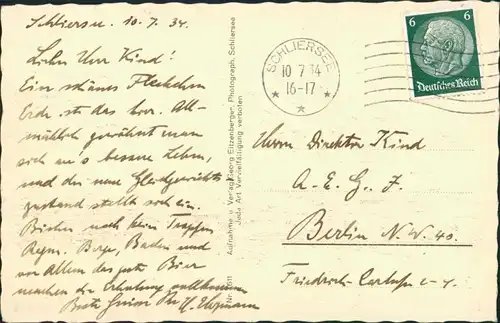 Schliersee, 10.7.34.
Lieber Herr Kind!
Ein schönes Fleckchen
Erde ist das hier. All-
mählich gewöhnt man
sich an's bessere Leben,
und der neue Gleichgewichts-
zustand stellt sich ein.
Bisher noch kein Tropfen
Regen. Berge, Baden und
vor Allem das gute Bier
machen die Erholung vollkommen
Beste Grüsse Ihr
Aufnahme u. Verlag Georg Eitzenberger, Photograph, Schliersee
Jede Art Vervielfältigung verboten
Nr.
SCHLIERSEE
10 7 34
16-17
6 6
Deutsches Reich
Herrn Direktor Kind
A. E. G.
Berlin N.W. 40.
Friedrich-Carlufer 2-4.